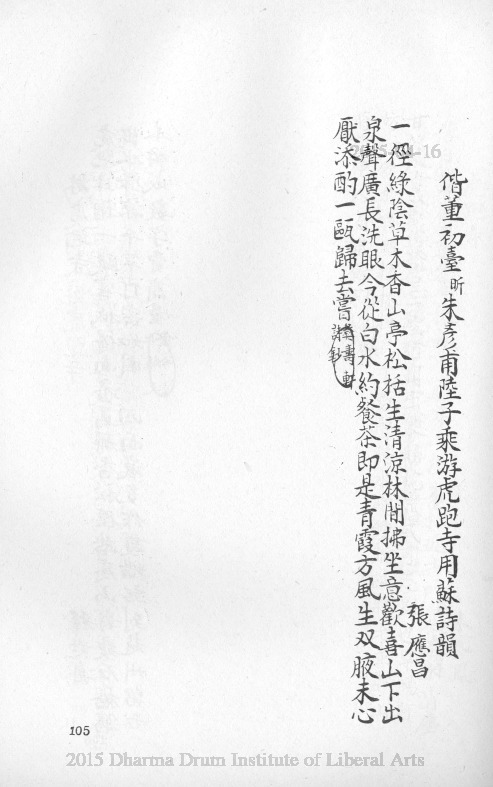 偕董初臺昕朱彥甫陸子乘游虎跑寺用蘇詩韻
張應昌
一徑綠陰草木香山亭松括生清涼林間拂坐意歡喜山下出
泉聲廣長洗眼今從白水約餐茶即是青霞方風生双腋未心
厭添酌一甌歸去嘗彝壽軒詩鈔
105
2015 Dharma Drum Institute of Liberal Arts